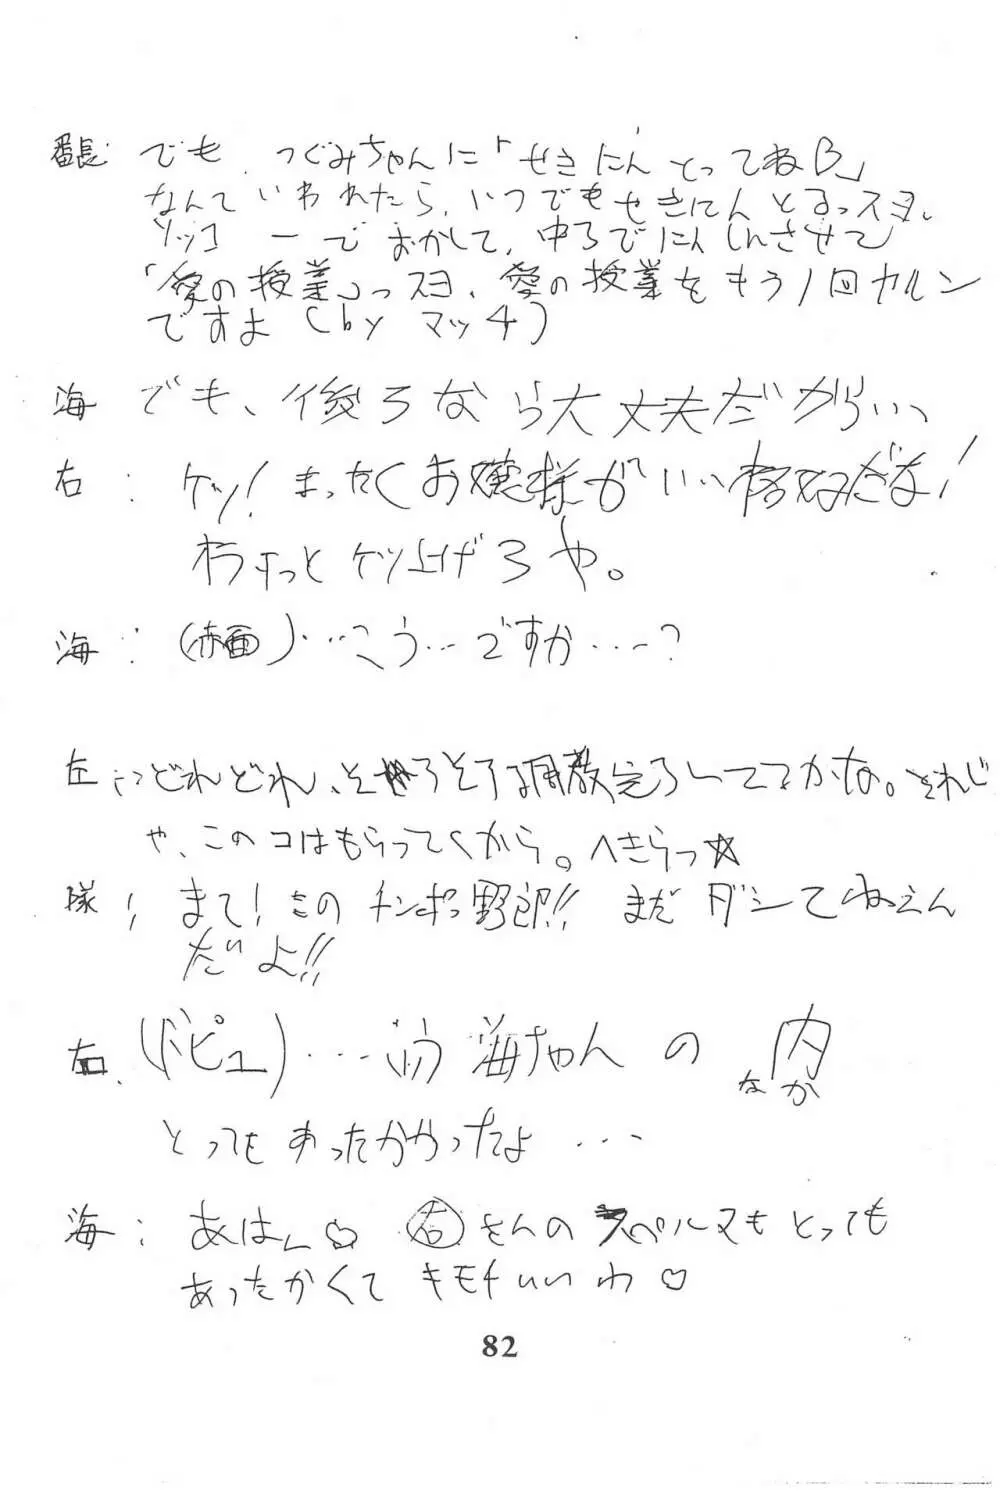 番長: でも、つぐみちゃんに「せきにんとってねβ」
なんていわれたら、いつでもせきにんとるっスヨ。
ソッコーでおかして、中ろでにんしんさせて
「愛の授業」っスヨ、愛の授業をもう1回カルン
ですよ(by マッチ)
海 でも、後ろなら大丈夫だからいっ
右: ケッ! まったくお嬢様がいい格好だな!
ケツ上げろや。
海: (赤面)…こう…ですか…?
左: どれどれ、そろそろ調教完了してるかな。それじ
ゃ、このコはもらってくから。へきらっ☆
隊! まて! このチンポっ野郎!! まだダシてねえん
だよ!!
右: (ドピュ)… 海ちゃんの内
なか
とってもあったかかったよ…
海: あはん♡ 右さんのスペルマもとっても
あったかくてキモチいいわ♡
82